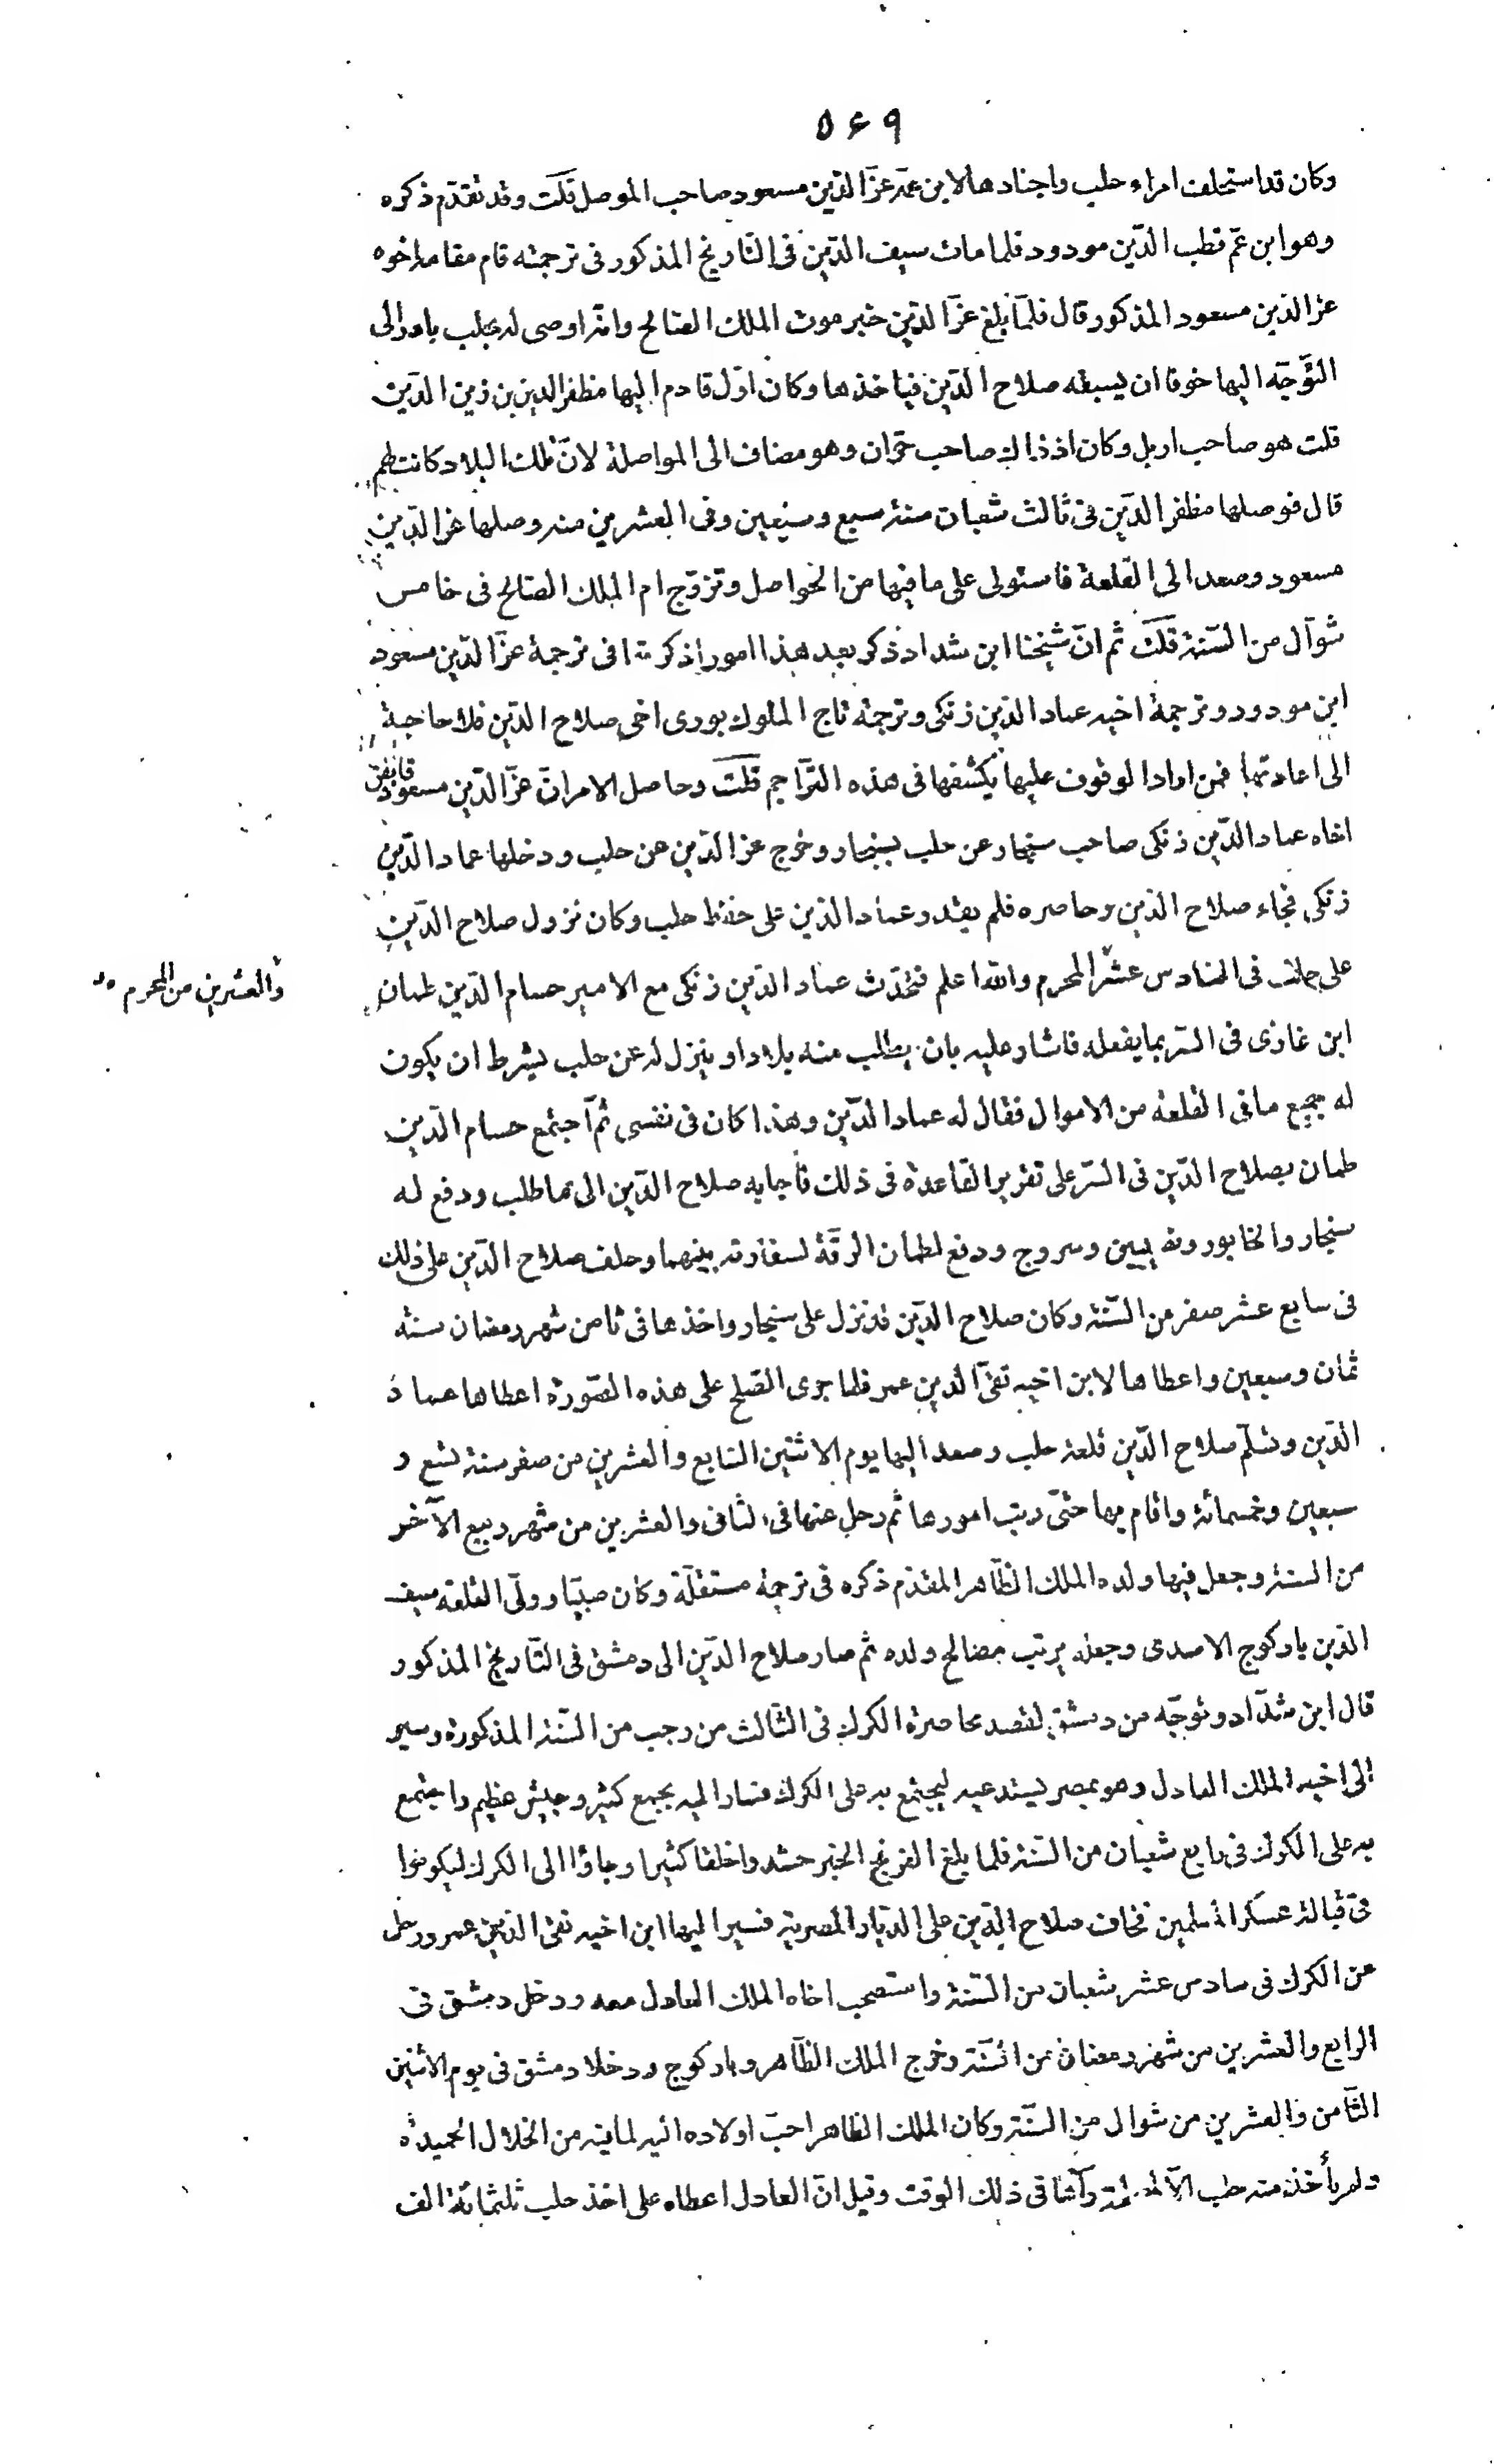 ٥٤٩
وكان قد استحلف امراء حلب واجنادها لابن عمّه عزّ الدّين مسعود صاحب الموصل قلت وقد تقدّم ذكره
وهو ابن عمّ قطب الدّين مودود فلما مات سيف الدّين فى التاريخ المذكور فى ترجمته قام مقامه اخوه
عز الدّين مسعود المذكور قال فلمّا بلغ عزّ الدّين خبر موت الملك الصّالح وانّه اوصى له بحلب بادر الى
التّوجّه اليها خوفا ان يسبقه صلاح الدّين فياخذها وكان اوّل قادم اليها مظفر الدين بن زين الدّين
قلت هو صاحب اربل وكان اذ ذاك صاحب حرّان وهو مضاف الى المواصلة لانّ تلك البلاد كانت لهم
قال فوصلها مظفر الدّين فى ثالث شعبان سنة سبع وسبعين وفى العشرين منه وصلها عز الدّين
مسعود وصعد الى القلعة فاستولى على ما فيها من الحواصل وتزوّج ام الملك الصّالح فى خامس
شوّال من السّنة قلت ثم انّ شيخنا ابن شداد ذكر بعد هذا امورا ذكرتها فى ترجمة عزّ الدّين مسعود
ابن مودود وترجمة اخيه عماد الدّين زنكى وترجمة تاج الملوك بورى اخى صلاح الدّين فلا حاجة
الى اعادتها فمن اراد الوقوف عليها يكشفها فى هذه التّراجم قلت وحاصل الامر انّ عزّ الدّين مسعود قايض
اخاه عماد الدّين زنكى صاحب سنجار عن حلب بسنجار وخرج عز الدّين عن حلب ودخلها عماد الدّين
زنكى فجاء صلاح الدّين وحاصره فلم يقدر عماد الدّين على حفظ حلب وكان نزول صلاح الدّين
على حلب فى السّادس عشر المحرم والله اعلم فتحدّث عماد الدّين زنكى مع الامير حسام الدّين طمان
والعشرين من المحرم
ابن غازى فى السّر بما يفعله فاشار عليه بان يطلب منه بلادا وينزل له عن حلب بشرط ان يكون
له جميع ما فى القلعة من الاموال فقال له عماد الدّين وهذا كان فى نفسى ثم اجتمع حسام الدّين
طمان بصلاح الدّين فى السّر على تقرير القاعدة فى ذلك فأجابه صلاح الدّين الى ما طلب ودفع له
سنجار والخابور ونصيبين وسروج ودفع لطمان الرقّة لسفارته بينهما وحلف صلاح الدّين على ذلك
فى سابع عشر صفر من السّنة وكان صلاح الدّين قد نزل على سنجار واخذها فى ثامن شهر رمضان سنة
ثمان وسبعين واعطاها لابن اخيه تقىّ الدين عمر فلما جرى الصّلح على هذه الصّورة اعطاها عماد
الدّين وتسلّم صلاح الدّين قلعة حلب وصعد اليها يوم الاثنين السّابع والعشرين من صفر سنة تسع و
سبعين وخمسمائة واقام بها حتّى رتب امورها ثم رحل عنها فى الثانى والعشرين من شهر ربيع الآخر
من السنة وجعل فيها ولده الملك الظّاهر المقدّم ذكره فى ترجمة مستقلّة وكان صبيّا وولّى القلعة سيف
الدّين يازكوج الاسدى وجعله يرتب مصالح ولده ثم سار صلاح الدّين الى دمشق فى التّاريخ المذكور
قال ابن شدّاد وتوجّه من دمشق لقصد محاصرة الكرك فى الثّالث من رجب من السّنة المذكورة وسير
الى اخيه الملك العادل وهو بمصر يستدعيه ليجتمع به على الكرك فسار اليه بجمع كثير وجيش عظيم واجتمع
به على الكرك فى رابع شعبان من السّنة فلما بلغ الفرنج الخبر حشدوا خلقا كثيرا وجاؤا الى الكرك ليكونوا
فى قبالة عسكر المسلمين فخاف صلاح الدّين على الدّيار المصرية فسير اليها ابن اخيه تقى الدّين عمر ورحل
عن الكرك فى سادس عشر شعبان من السّنة واستصحب اخاه الملك العادل معه ودخل دمشق فى
الرابع والعشرين من شهر رمضان من السّنة وخرج الملك الظّاهر ويازكوج ودخلا دمشق فى يوم الاثنين
الثّامن والعشرين من شوال من السّنة وكان الملك الظاهر احبّ اولاده اليه لما فيه من الخلال الحميدة
ولم يأخذ منه حلب الّا لمصلحة رآها فى ذلك الوقت وقيل انّ العادل اعطاه على اخذ حلب ثلثمائة الف